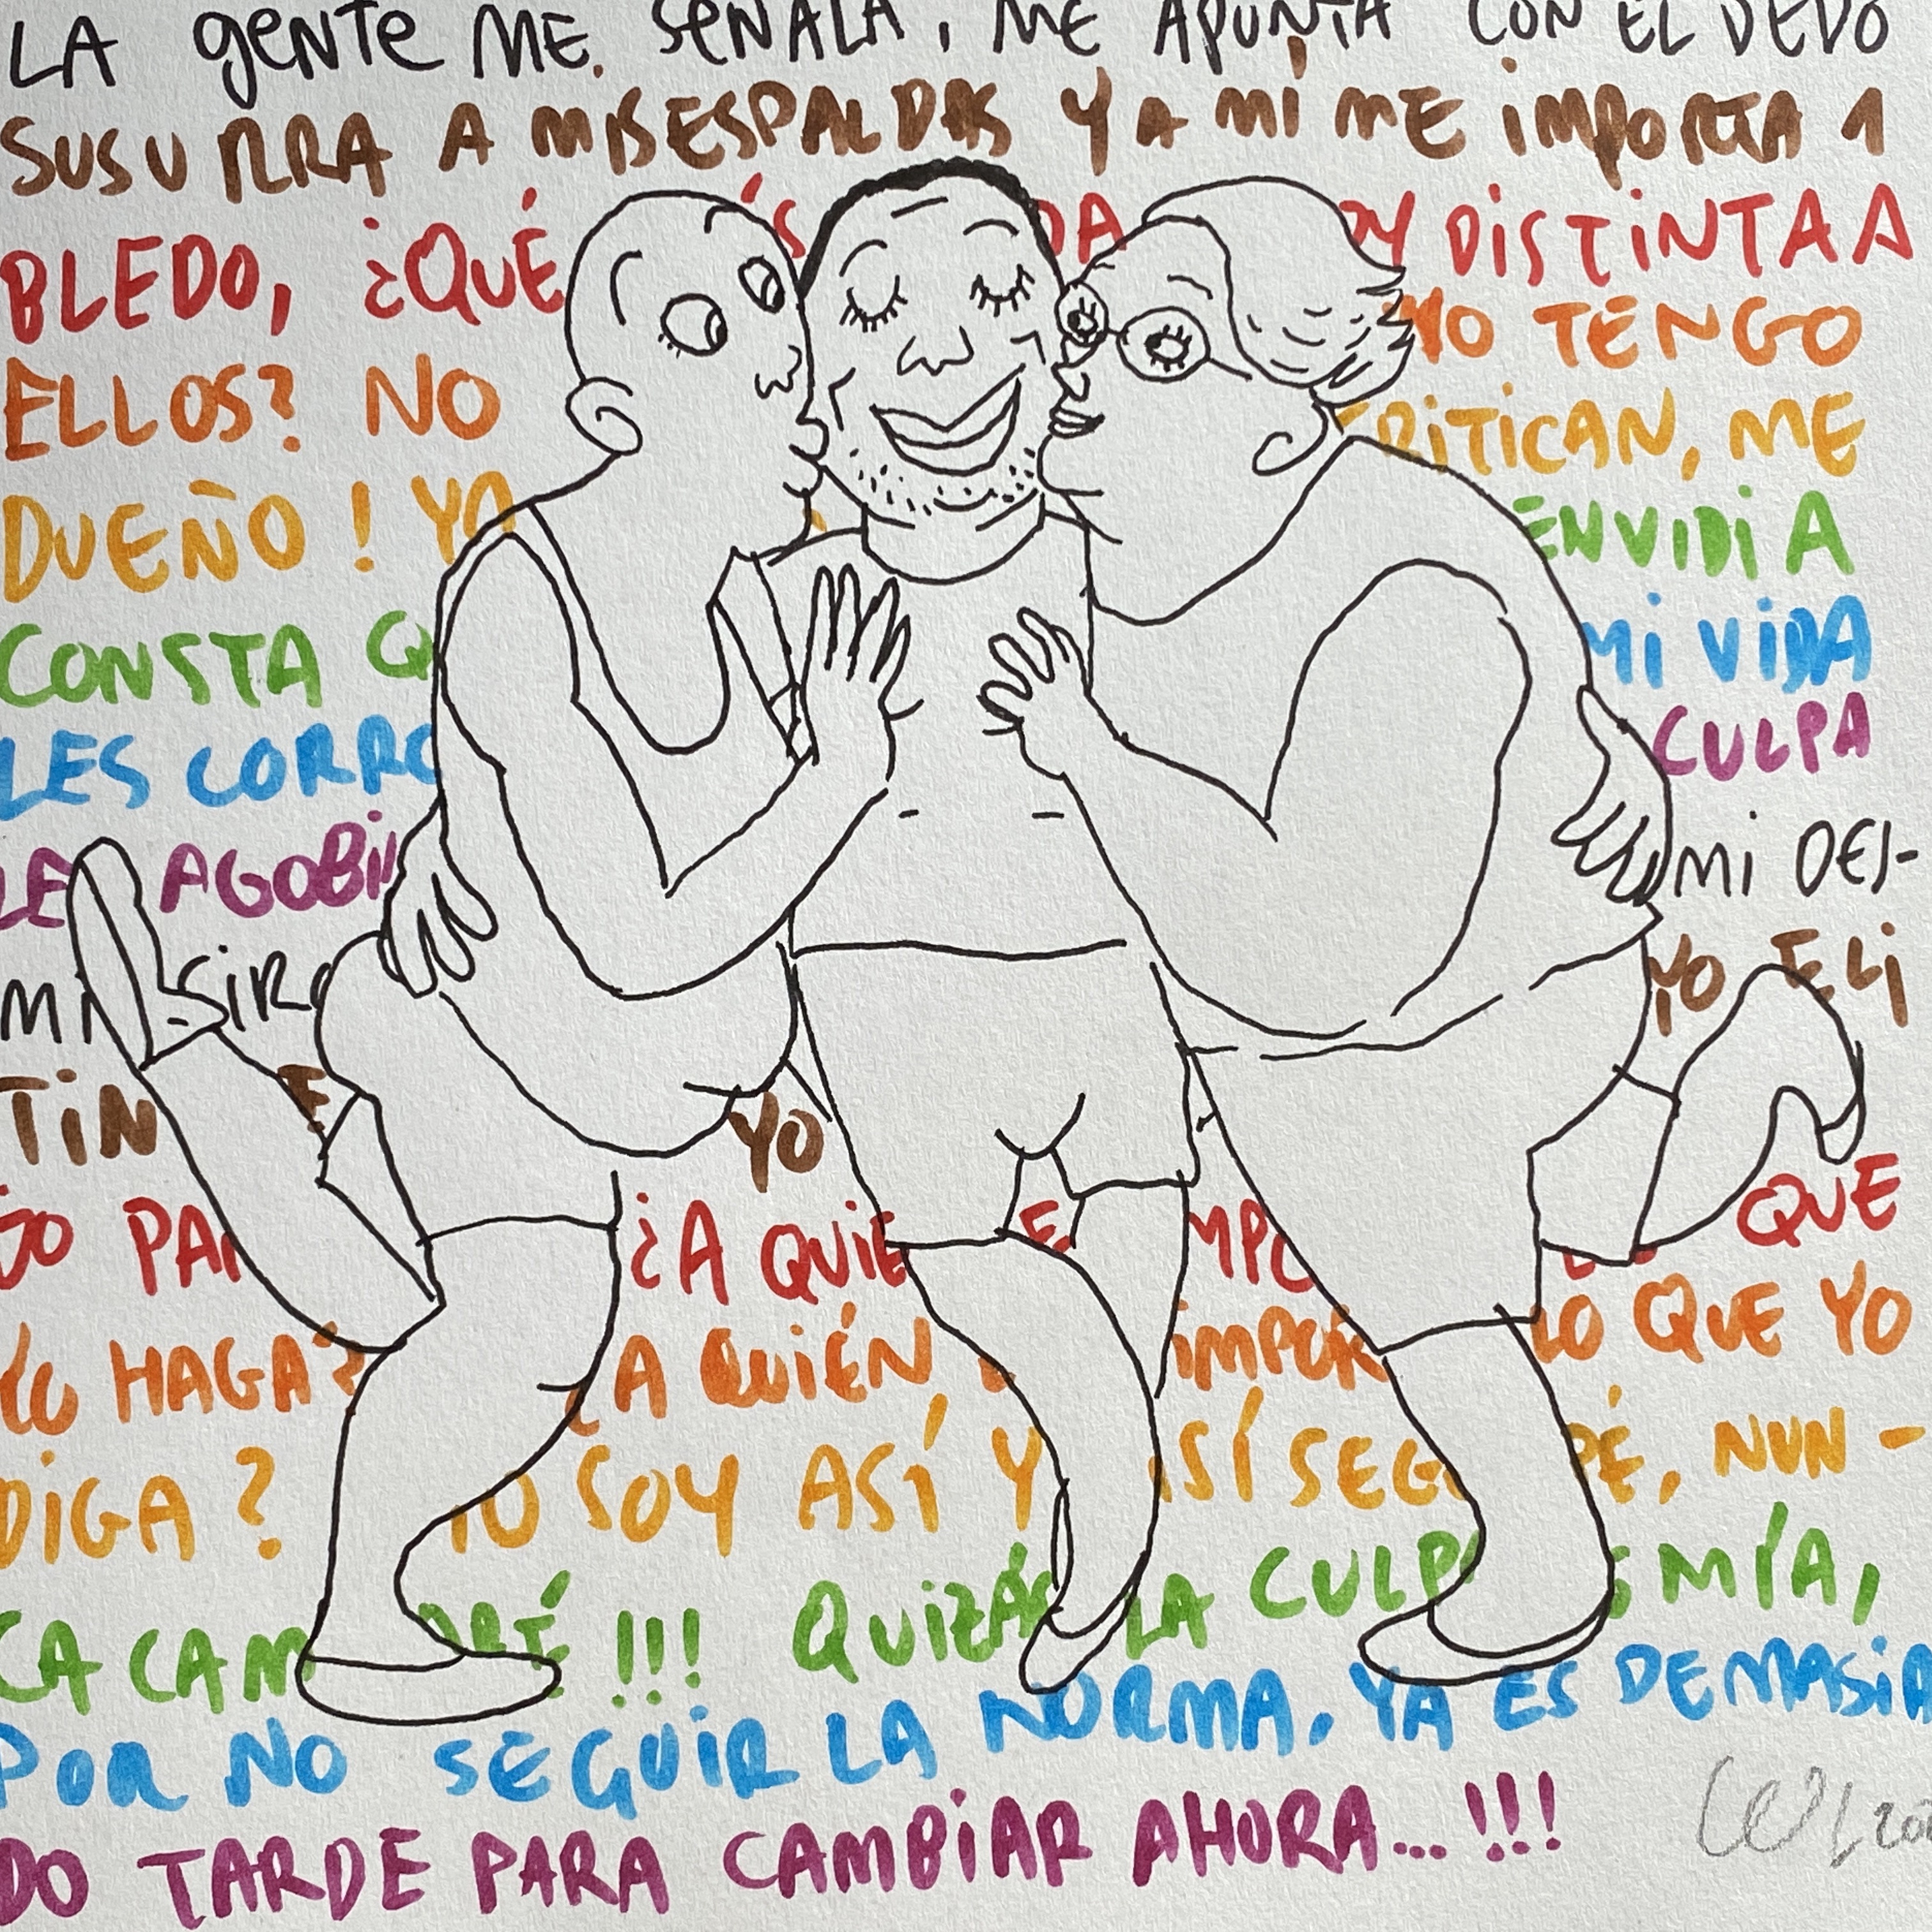 LA gENTE ME SEÑALA, ME APUNTA CON EL DEDO
SUSURRA A MIS ESPALDAS Y A Mi ME iMPORTA 1
BLEDO, ¿QUÉ DA Y DiSTiNTA A
ELLOS? NO YO TENGO
DUEÑO! YO CRiTiCAN, ME
CONSTA Q ENViDiA
LES CORRO Mi ViDA
LES AGOBi CULPA
Mi DES-
YO ELi
TiN YO
JO PA ¿A QUiE MPO QUE
YO HAGA? ¿A QUiÉN iMPOR LO QUE YO
DiGA? YO SOY ASí Y ASÍ SEGU RÉ, NUN-
CA CAM ARÉ!!! QUiZÁS LA CULPA ES MÍA,
POR NO SEGUiR LA NORMA, YA ES DEMASiA
DO TARDE PARA CAMBiAR AHORA...!!!